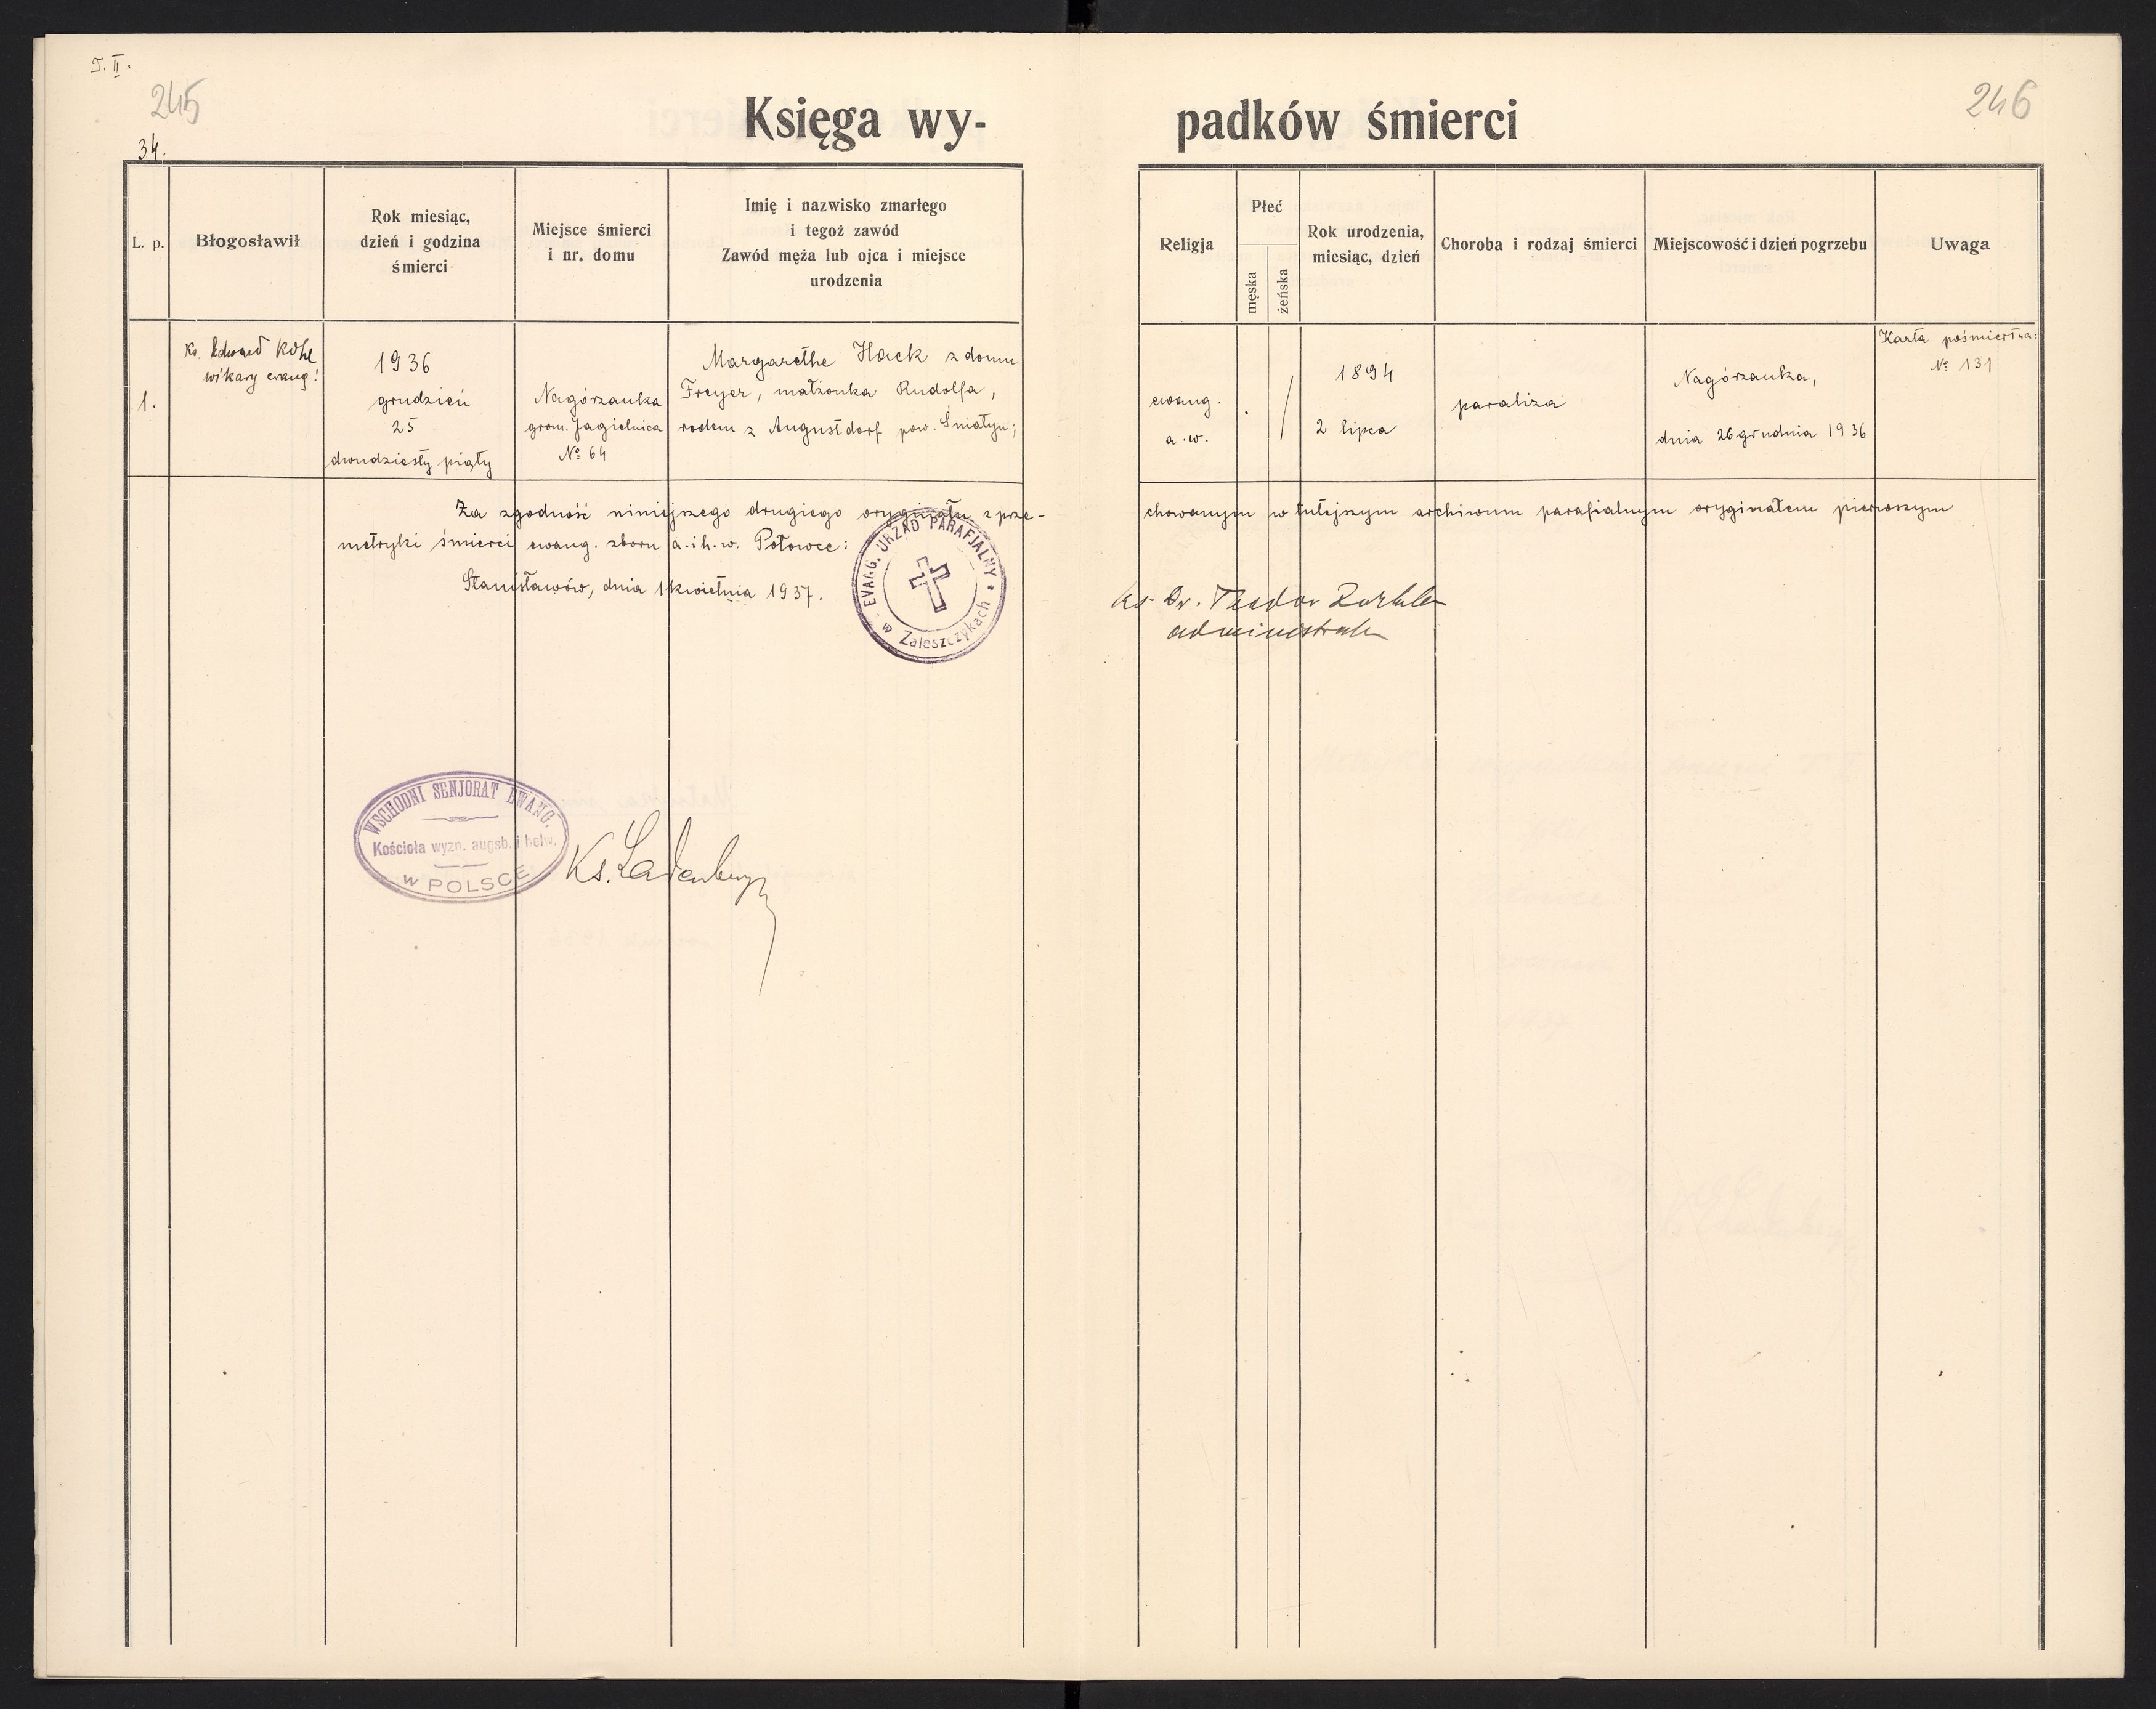 T. II.
245
246
34.
Księga wy-
padków śmierci
L. p.
Błogosławił
Rok miesiąc,
dzień i godzina
śmierci
Miejsce śmierci
i nr. domu
Imię i nazwisko zmarłego
i tegoż zawód
Zawód męża lub ojca i miejsce
urodzenia
Religja
Płeć
męska
żeńska
Rok urodzenia,
miesiąc, dzień
Choroba i rodzaj śmierci
Miejscowość i dzień pogrzebu
Uwaga
1.
Ks. Edward Kohl
wikary ewang!
1936
grudzień
25
dwudziesty piąty
Nagórzanka
grom. Jagielnica
№ 64
Margarethe Hack z domu
Freyer, małżonka Rudolfa,
rodem z Augustdorf pow. Śniatyn;
ewang.
a. w.
/
1894
2 lipca
paraliza
Nagórzanka,
dnia 26 grudnia 1936
Karta pośmiertna:
№ 131
Za zgodność niniejszego drugiego oryginału z prze-
chowanym w tutejszym archiwum parafialnym oryginałem pierwszym
metryki śmierci ewang. zboru a. i h. w. Potowce:
Stanisławów, dnia 1 kwietnia 1937.
EVANG. URZĄD PARAFJALNY
w Zaleszczykach
Ks. Dr. Teodor
administrator
WSCHODNI SENJORAT EWANG.
Kościoła wyzn. augsb. i helw.
w POLSCE
Ks. Ladenberger